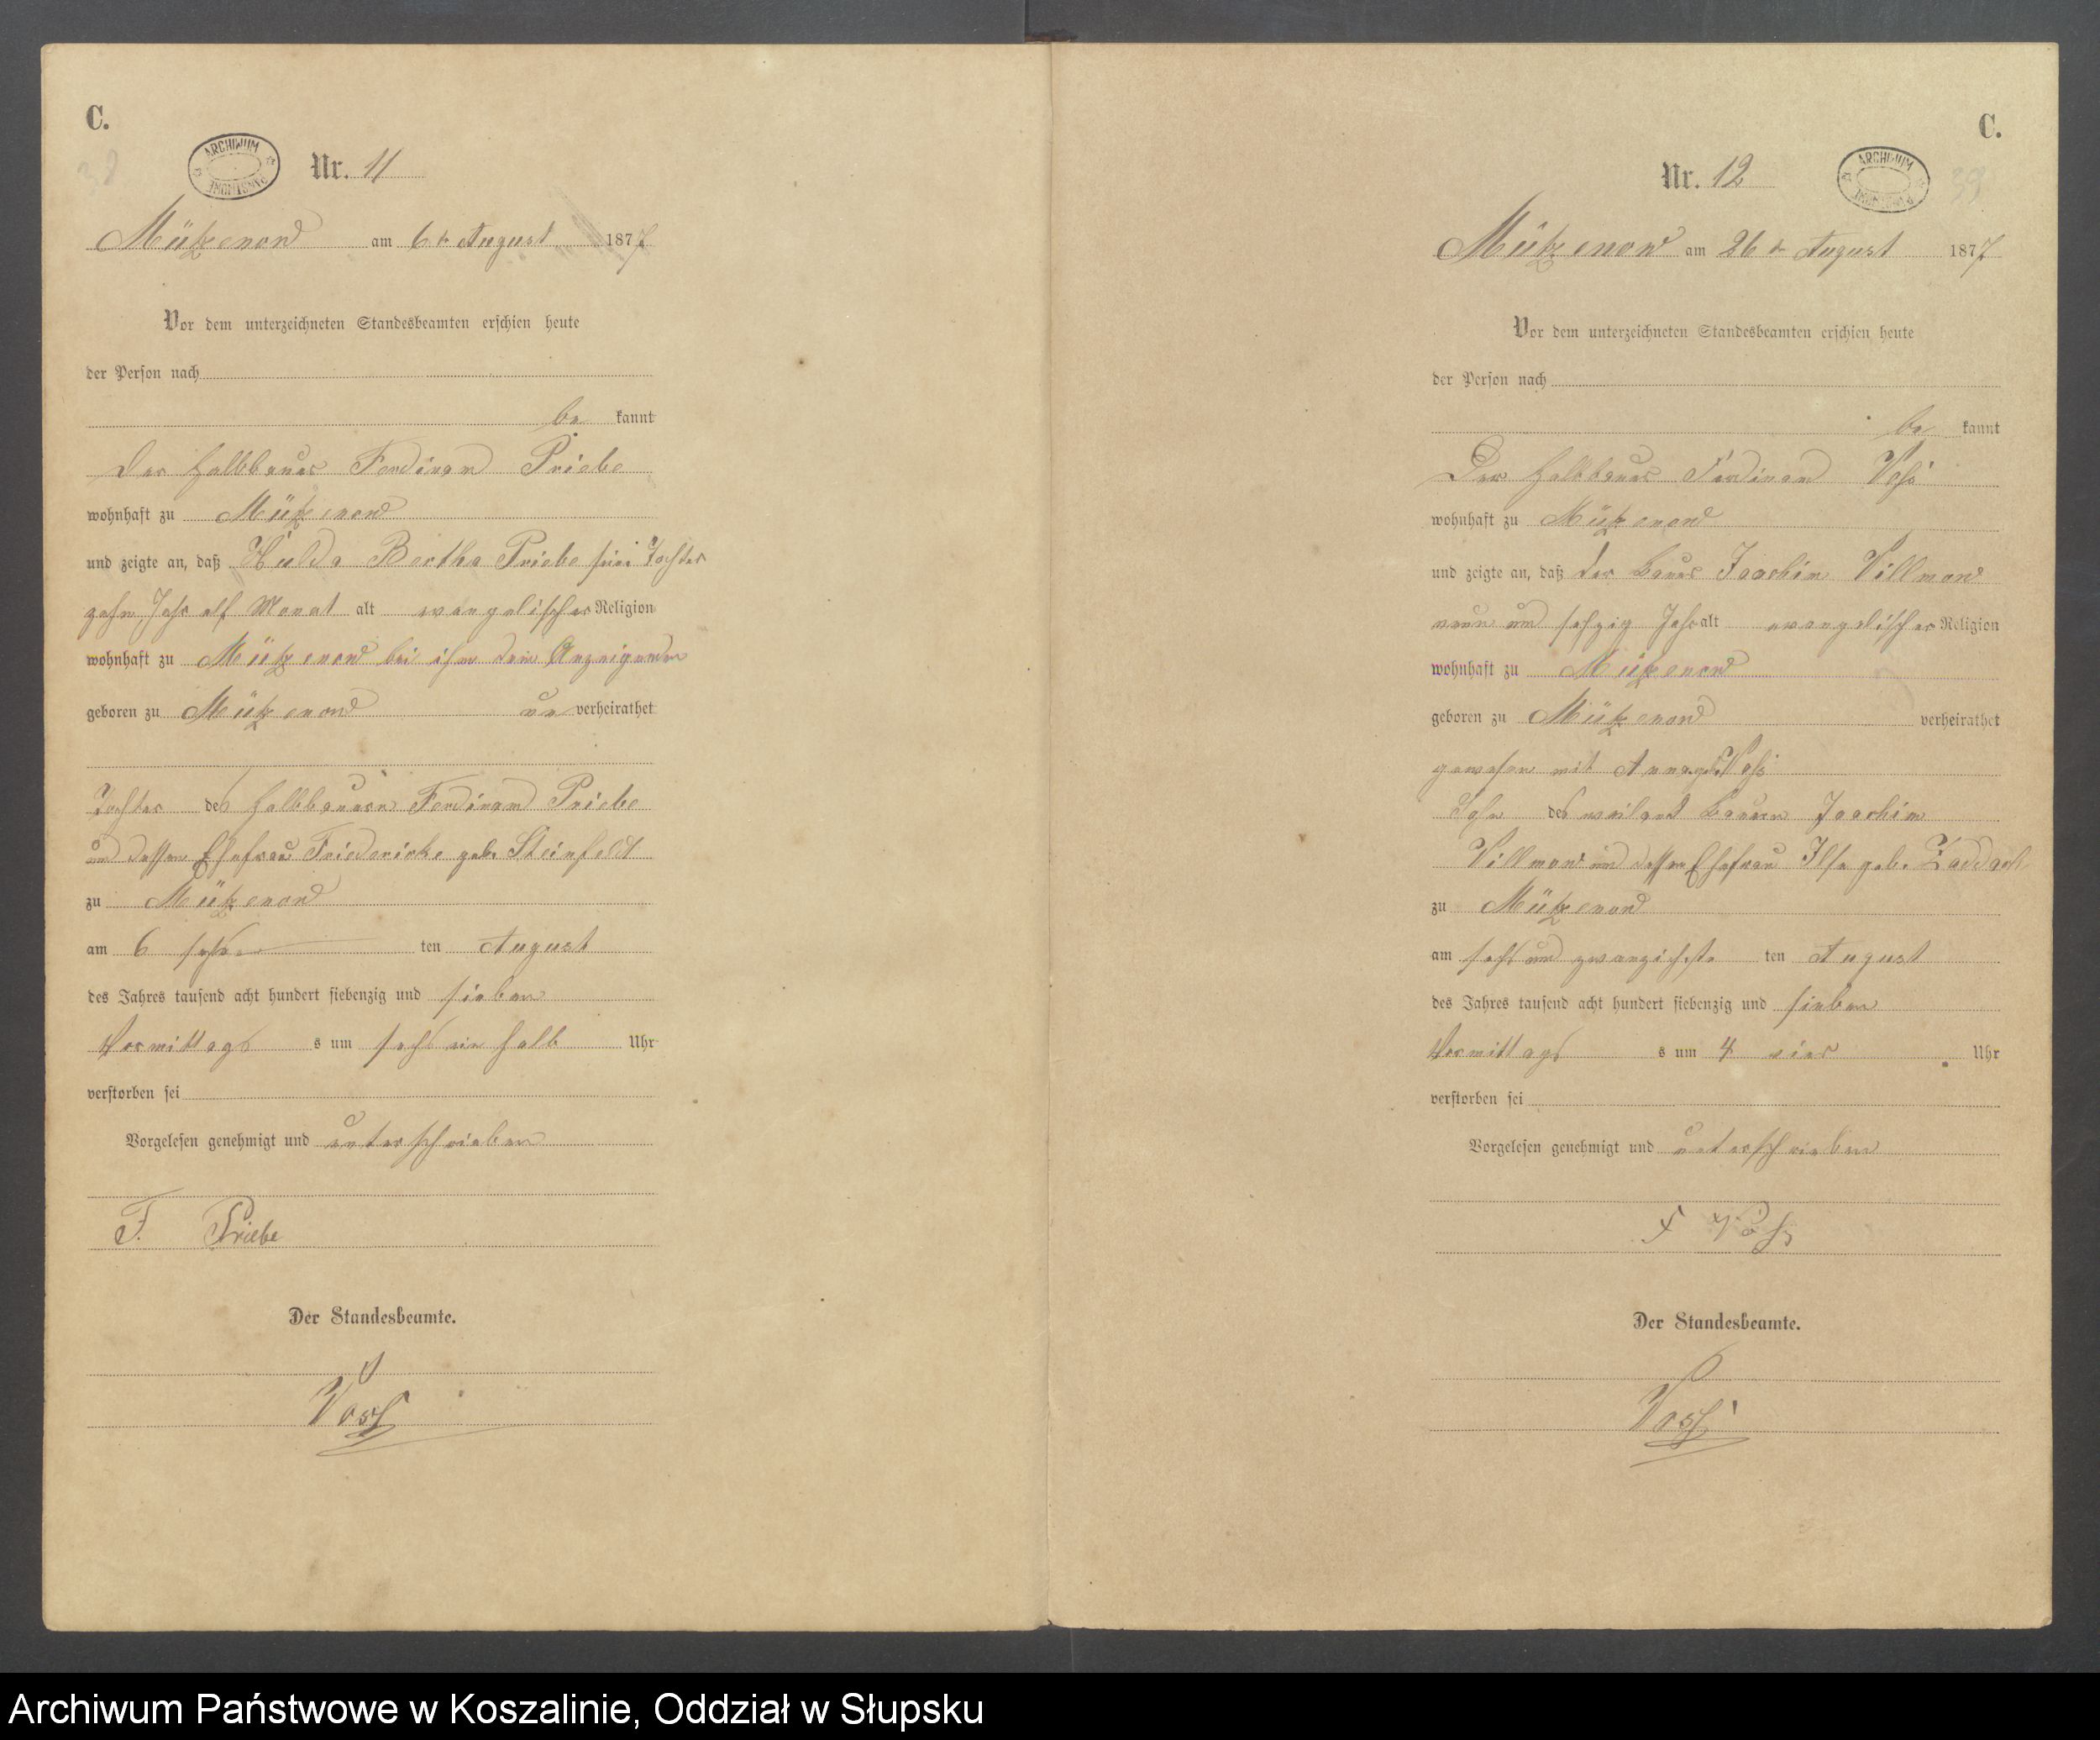 C.
ARCHIWUM PAŃSTWOWE
Nr. 11
Mützenow am 6 t August 1877
Vor dem unterzeichneten Standesbeamten erschien heute
der Person nach
be kannt
der Halbbauer Ferdinand Priebe
wohnhaft zu Mützenow
und zeigte an, daß Hulda Bertha Priebe seine Tochter
zehn Jahr elf Monat alt evangelischer Religion
wohnhaft zu Mützenow bei ihm dem Anzeigenden
geboren zu Mützenow un verheirathet
Tochter des Halbbauern Ferdinand Priebe
und dessen Ehefrau Friedericke geb. Steinfeldt
zu Mützenow
am 6 ten August
des Jahres tausend acht hundert siebenzig und sieben
Vormittags s um sechs ein halb Uhr
verstorben sei
Vorgelesen genehmigt und unterschrieben
F. Priebe
Der Standesbeamte.
Voss
C.
Nr. 12
ARCHIWUM PAŃSTWOWE
39
Mützenow am 26 t August 1877
Vor dem unterzeichneten Standesbeamten erschien heute
der Person nach
be kannt
Der Halbbauer Ferdinand Voß
wohnhaft zu Mützenow
und zeigte an, daß der Bauer Joachim Villmow
neun und sechzig Jahr alt evangelischer Religion
wohnhaft zu Mützenow
geboren zu Mützenow verheirathet
gewesen mit Anna geb. Voß
Sohn des weiland Bauern Joachim
Villmow und dessen Ehefrau Ilse geb. Zaddach
zu Mützenow
am sechs und zwanzigste ten August
des Jahres tausend acht hundert siebenzig und sieben
Vormittags s um 4 vier Uhr
verstorben sei
Vorgelesen genehmigt und unterschrieben
F Voß
Der Standesbeamte.
Voss
Archiwum Państwowe w Koszalinie, Oddział w Słupsku